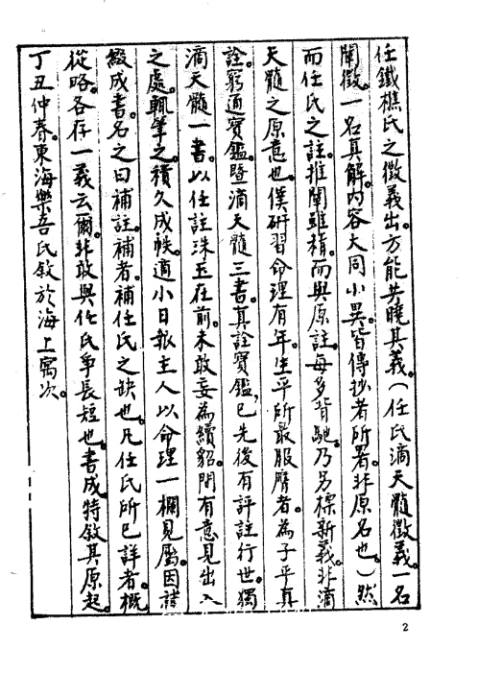 任鐵樵氏之徵義出。方能共曉其義。(任氏滴天髓徵義。一名
闡微。一名真解。內容大同小異。皆傳抄者所署。非原名也。)然
而任氏之註。推闡雖精。而與原註。每多背馳。乃另標新義。非滴
天髓之原意也。僕研習命理有年。生平所最服膺者。為子平真
詮。窮通寶鑑。暨滴天髓三書。真詮寶鑑，已先後有評註行世。獨
滴天髓一書。以任註珠玉在前。未敢妄為續貂。間有意見出入
之處。輒筆之。積久成帙。適小日報主人以命理一欄見屬。因諸
綴成書。名之曰補註。補者。補任氏之缺也。凡任氏所已詳者。概
從略。各存一義云爾。非敢與任氏爭長短也。書成。特敘其原起。
丁丑仲春。東海樂吾氏敘於海上寓次。
2